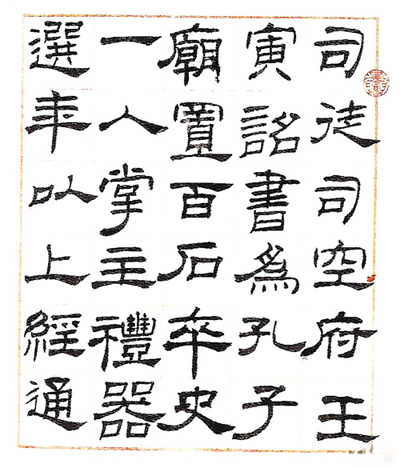 司徒司空府王
寅詔書爲孔子
廟置百石卒史
一人掌主禮器
選年以上經通